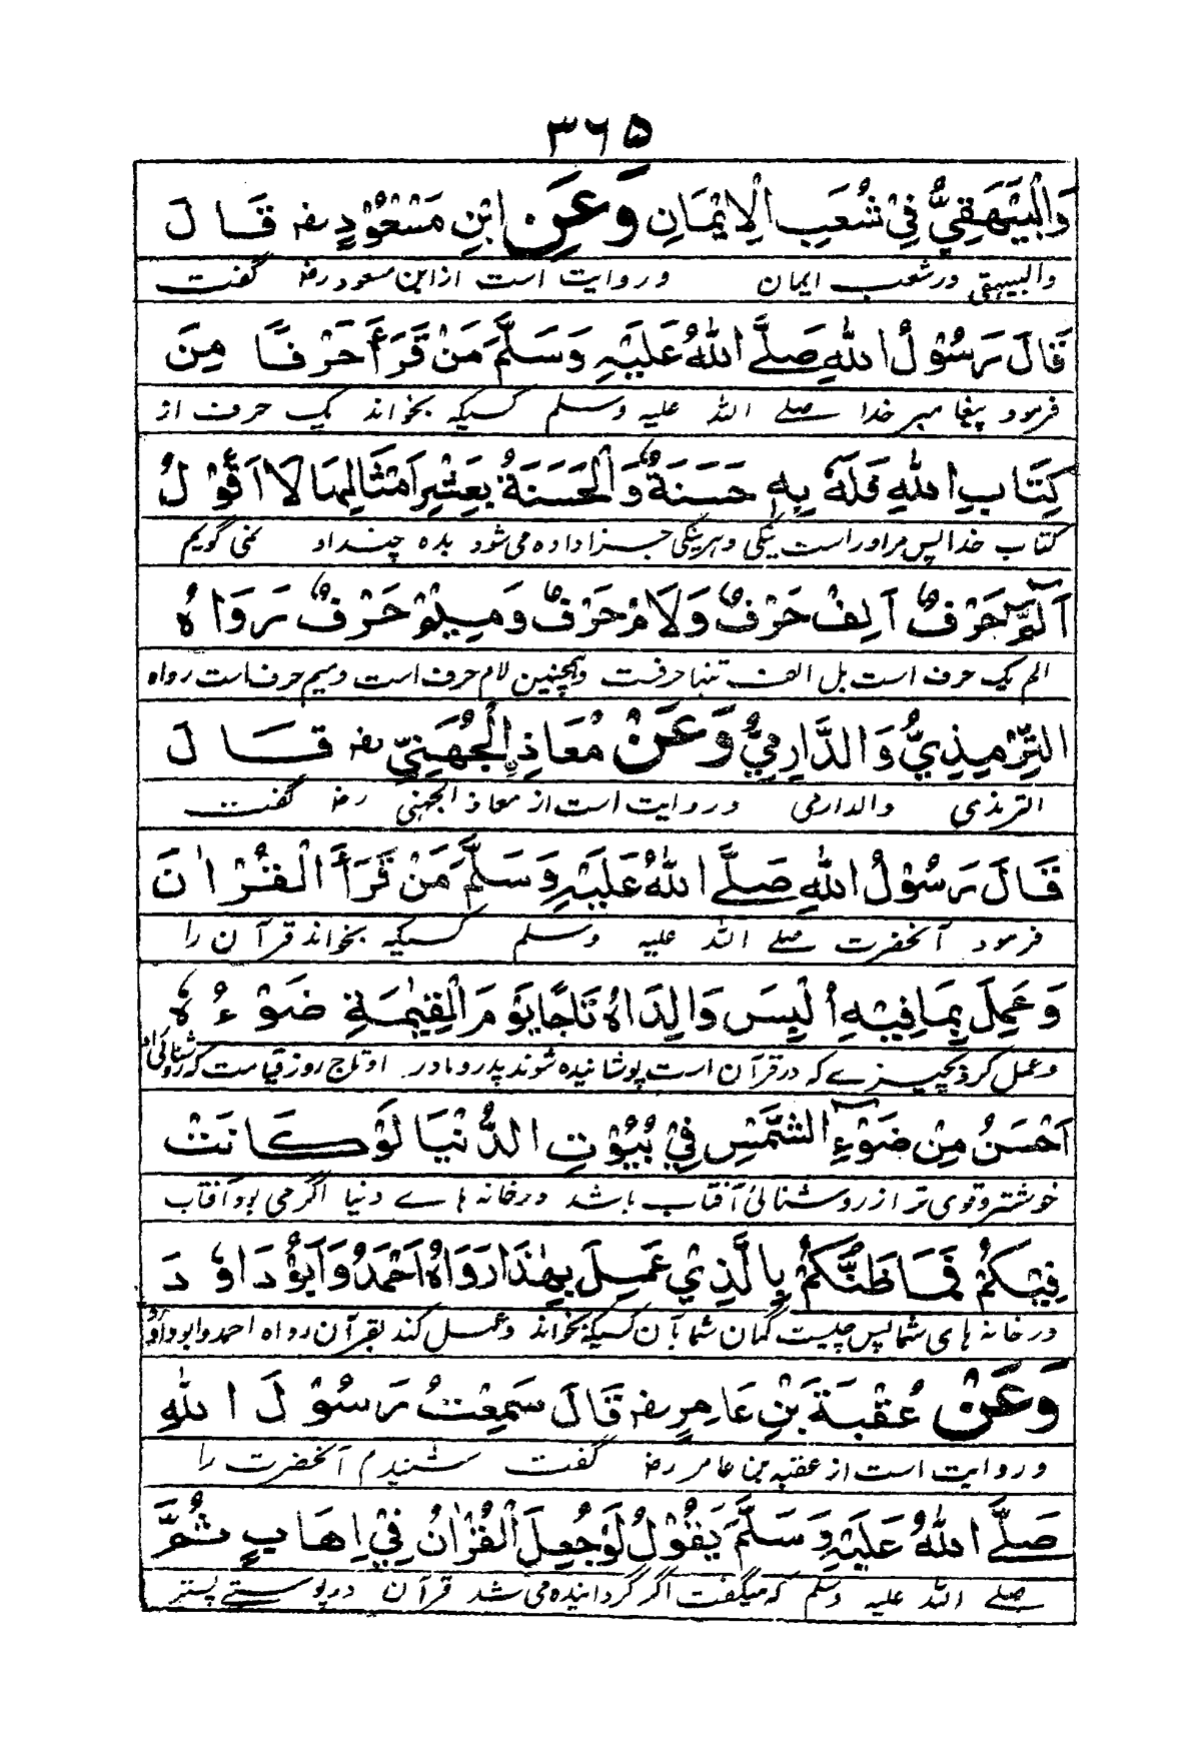 ۳۶۵
وَالْبَيْهَقِيُّ فِيْ شُعَبِ الْاِيْمَانِ وَعَنِ ابْنِ مَسْعُوْدٍ رض قَالَ
والبیهقی در شعب ایمان و روایت است از ابن مسعود رض گفت
قَالَ رَسُوْلُ اللهِ صَلَّے اللهُ عَلَيْهِ وَسَلَّمَ مَنْ قَرَأَ حَرْفًا مِنَ
فرمود پیغامبر خدا صلے الله علیه وسلم کسیکه بخواند یک حرف از
كِتَابِ اللهِ فَلَهٗ بِهٖ حَسَنَةٌ وَّالْحَسَنَةُ بِعَشْرِ اَمْثَالِهَا لَا اَقُوْلُ
کتاب خدا پس مر او راست نیکی و هر نیکی جزا داده می شود بده چنداد نمی گویم
آلٓمّٓ حَرْفٌ اَلِفٌ حَرْفٌ وَلَامٌ حَرْفٌ وَمِيْمٌ حَرْفٌ رَوَاهُ
الم یک حرف است بل الف تنها حرفت و همچنین لام حرف است و میم حرف است رواه
التِّرْمِيْذِيُّ وَالدَّارِمِيُّ وَعَنْ مُعَاذِ الْجُهَنِيِّ رض قَالَ
الترمذی والدارمی و روایت است از معاذ الجهنی رض گفت
قَالَ رَسُوْلُ اللهِ صَلَّے اللهُ عَلَيْهِ وَسَلَّمَ مَنْ قَرَأَ الْقُرْاٰنَ
فرمود آنحضرت صلے الله علیه وسلم کسیکه بخواند قرآن را
وَعَمِلَ بِمَا فِيْهِ اُلْبِسَ وَالِدَاهُ تَاجًا يَوْمَ الْقِيٰمَةِ ضَوْءُهٗ
وعمل کرد بچیزے که در قرآن است پوشانیده شوند پدر و مادر او تاج روز قیامت که روشنائی او
اَحْسَنُ مِنْ ضَوْءِ الشَّمْسِ فِيْ بُيُوْتِ الدُّنْيَا لَوْ كَانَتْ
خوشتر و قوی تر از روشنائی آفتاب باشد در خانه هاے دنیا اگر می بود آفتاب
فِيْكُمْ فَمَا ظَنُّكُمْ بِالَّذِيْ عَمِلَ بِهٰذَا رَوَاهُ اَحْمَدُ وَاَبُوْدَاوٗدَ
در خانه های شما پس چیست گمان شما بآن کسیکه بخواند وعمل کند بقرآن رواه احمد وابوداؤد
وَعَنْ عُقْبَةَ بْنِ عَامِرٍ رض قَالَ سَمِعْتُ رَسُوْلَ اللهِ
و روایت است از عقبه بن عامر رض گفت شنیدم آنحضرت را
صَلَّے اللهُ عَلَيْهِ وَسَلَّمَ يَقُوْلُ لَوْ جُعِلَ الْقُرْاٰنُ فِيْ اِهَابٍ ثُمَّ
صلے الله علیه وسلم که میگفت اگر گردانیده می شد قرآن در پوستے پستر